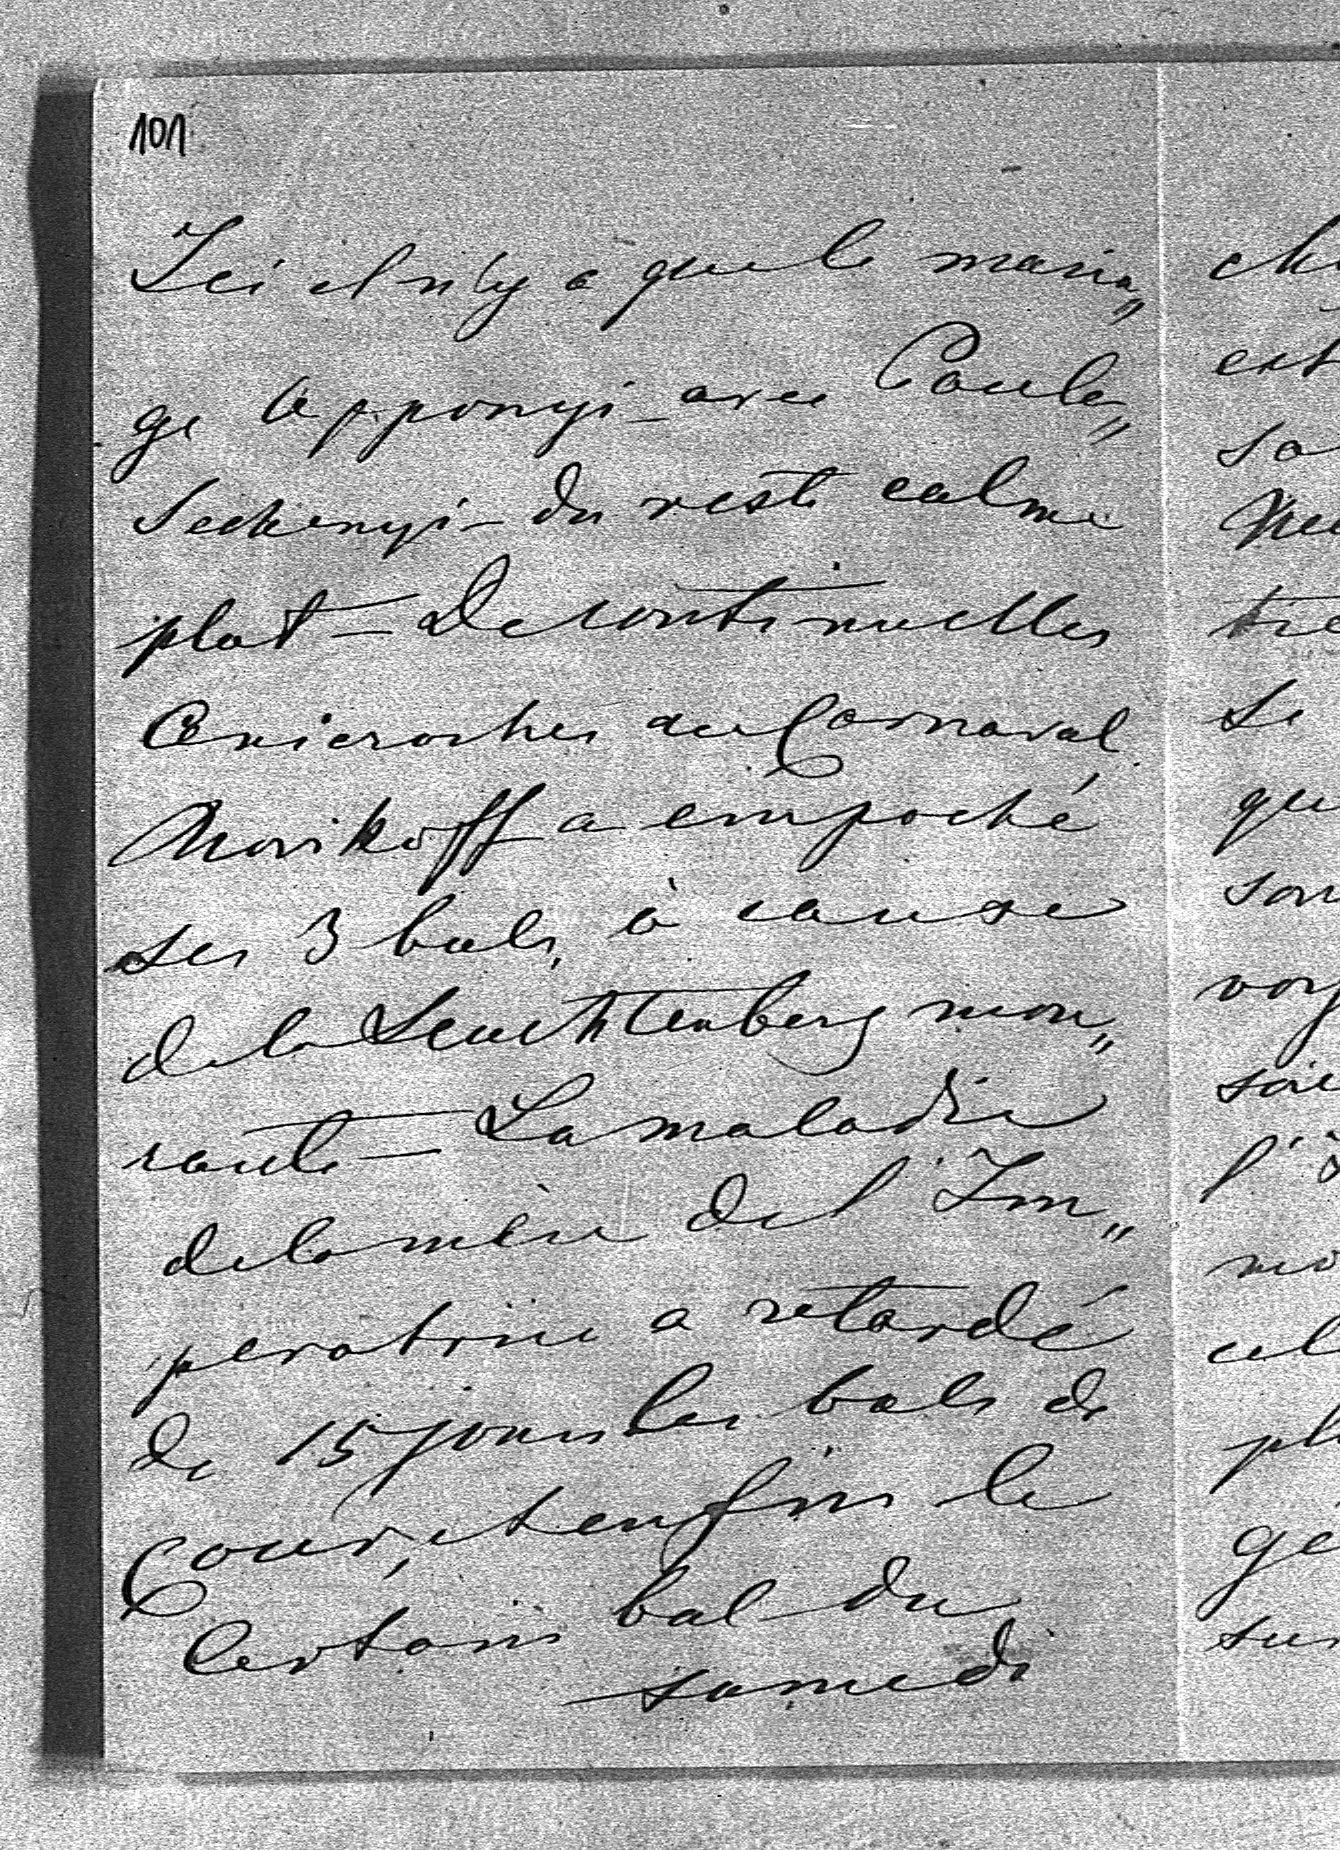 101
Ici il n'y a que le maria„
ge Apponyi avec Paule„
Sechenyi – du reste calme
plat – De continuelles
Anicroches au Carnaval
Novikoff a empoché
ses 3 bals, à cause
de la Leuchtenberg mou„
rante – La maladie
de la mère de l'Im„
peratrice a retardé
de 15 jours les bals de
Cour, et enfin le
Certain bal du
samedi